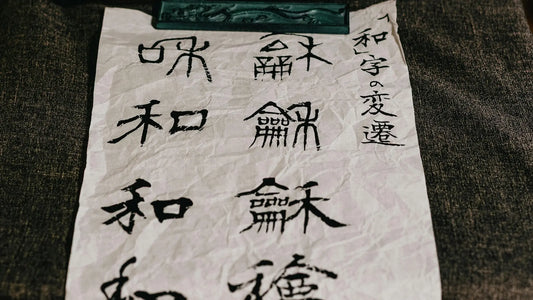 「和」字の変遷
龢龢龢
咊和和和